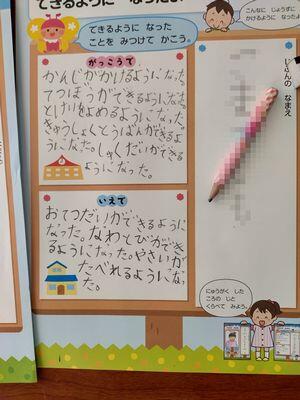 できるようになったよ
できるように なった
ことを みつけて かこう。
こんなに じょうずに
かけるように なったよ
がっこうで
かんじがかけるようになった。
てつぼうができるようになた。
とけいをよめるようになった。
きゅうしょくとうばんができるよ
うになた。しゅくだいができる
ようになった。
いえで
おてつだいができるように
なった。なわとびができ
るようになった。やさいが
たべれるようになっ
た。
じぶんの なまえ
にゅうがく した
ころの じと
くらべて みよう。